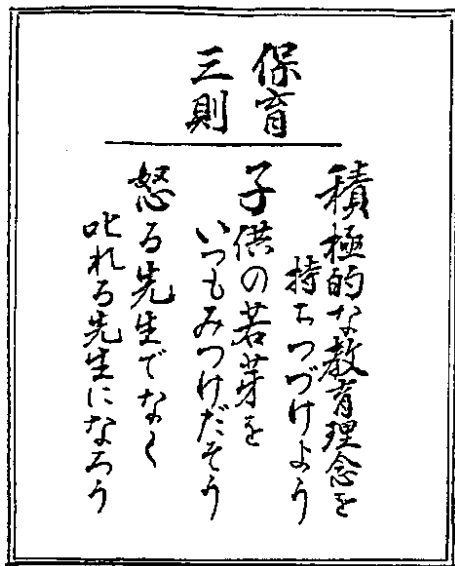 保育
三則
積極的な教育理念を
持ちつづけよう
子供の若芽を
いつもみつけだそう
怒る先生でなく
叱れる先生になろう